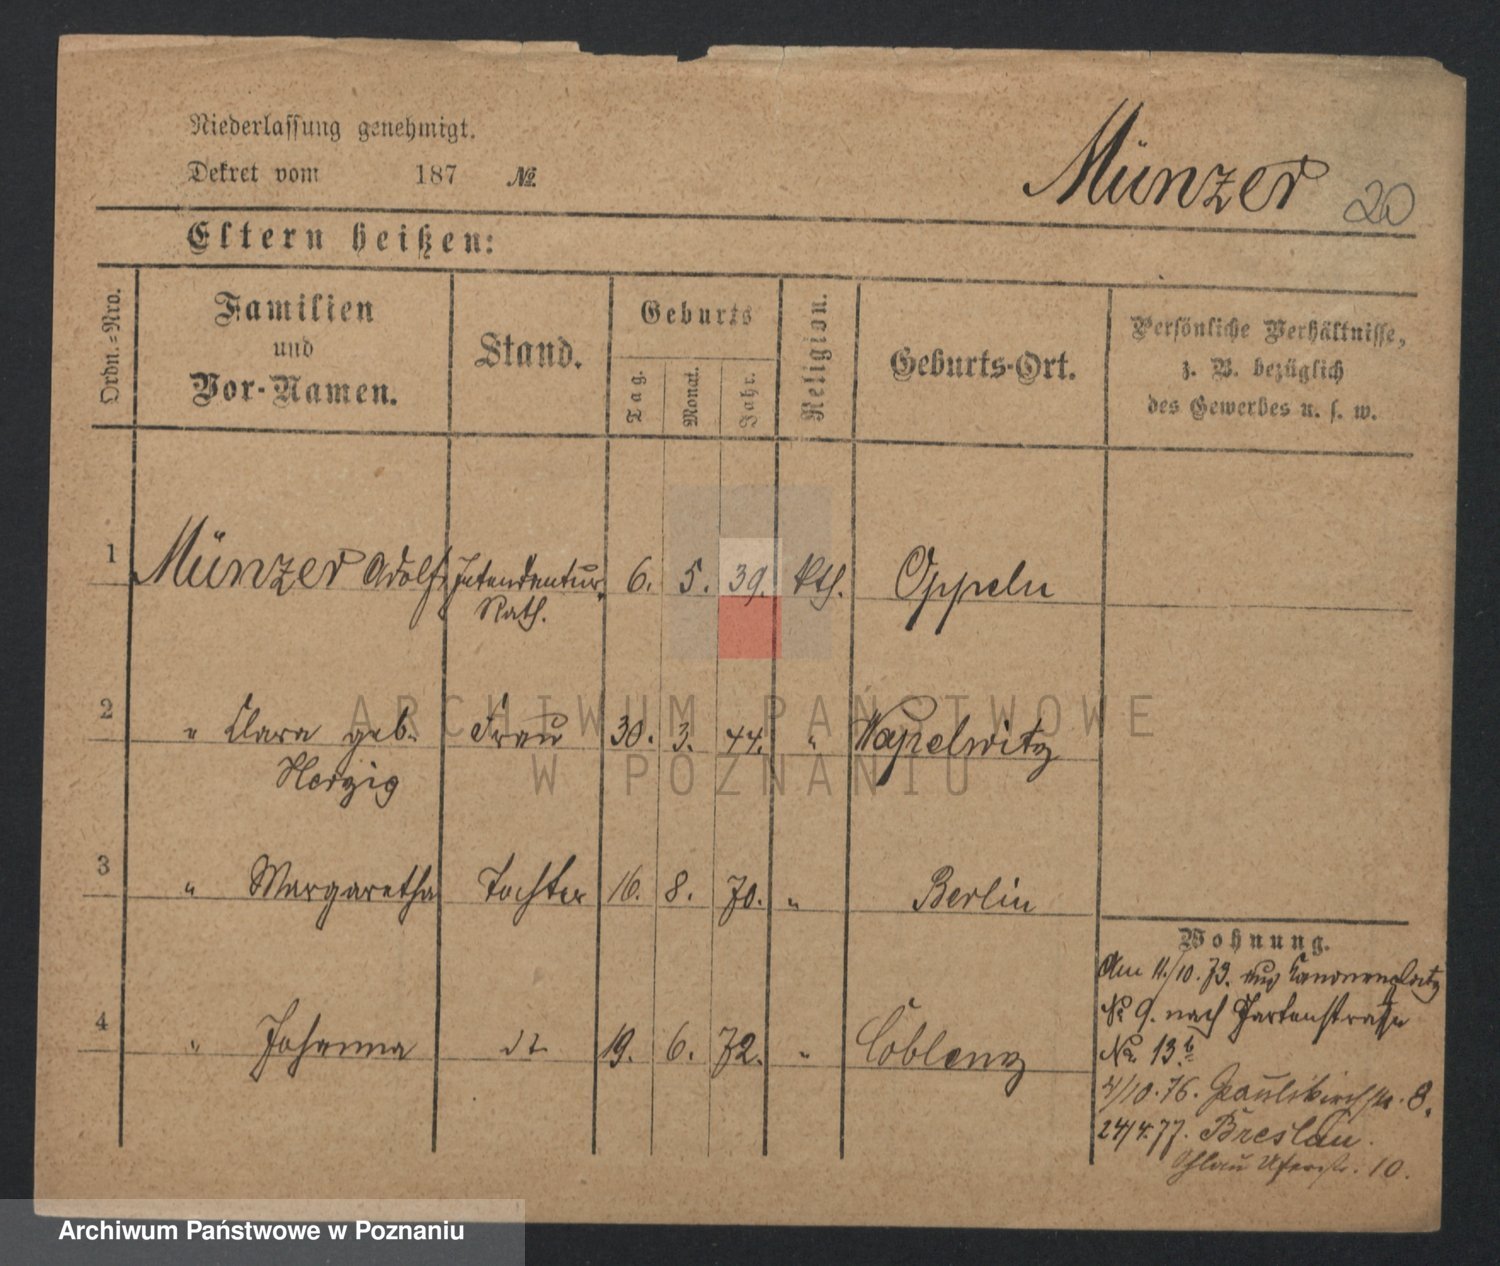 Niederlassung genehmigt.
Dekret vom 187 №
Münzer 20
Eltern heißen:
Ordn.=Nro.
Familien
und
Vor-Namen.
Stand.
Geburts
Tag.
Monat.
Jahr.
Religion.
Geburts-Ort.
Persönliche Verhältnisse,
z. B. bezüglich
des Gewerbes u. s. w.
1 Münzer Adolf Intendantur. 6. 5. 39. kth. Oppeln
Rath.
2 " Clara geb. Frau 30. 3. 44. " Napelwitz
Herzig
3 " Margaretha Tochter 16. 8. 70. " Berlin
4 " Johanna dt 19. 6. 72. " Coblenz
Wohnung.
Am 11./10. 73. aus Kanonenplatz
№ 9. nach Gartenstraße
No. 13.b
4/10. 76. Paulikirchstr. 8.
24/4. 77. Breslau.
Uferstr. 10.
ARCHIWUM PAŃSTWOWE
W POZNANIU
Archiwum Państwowe w Poznaniu